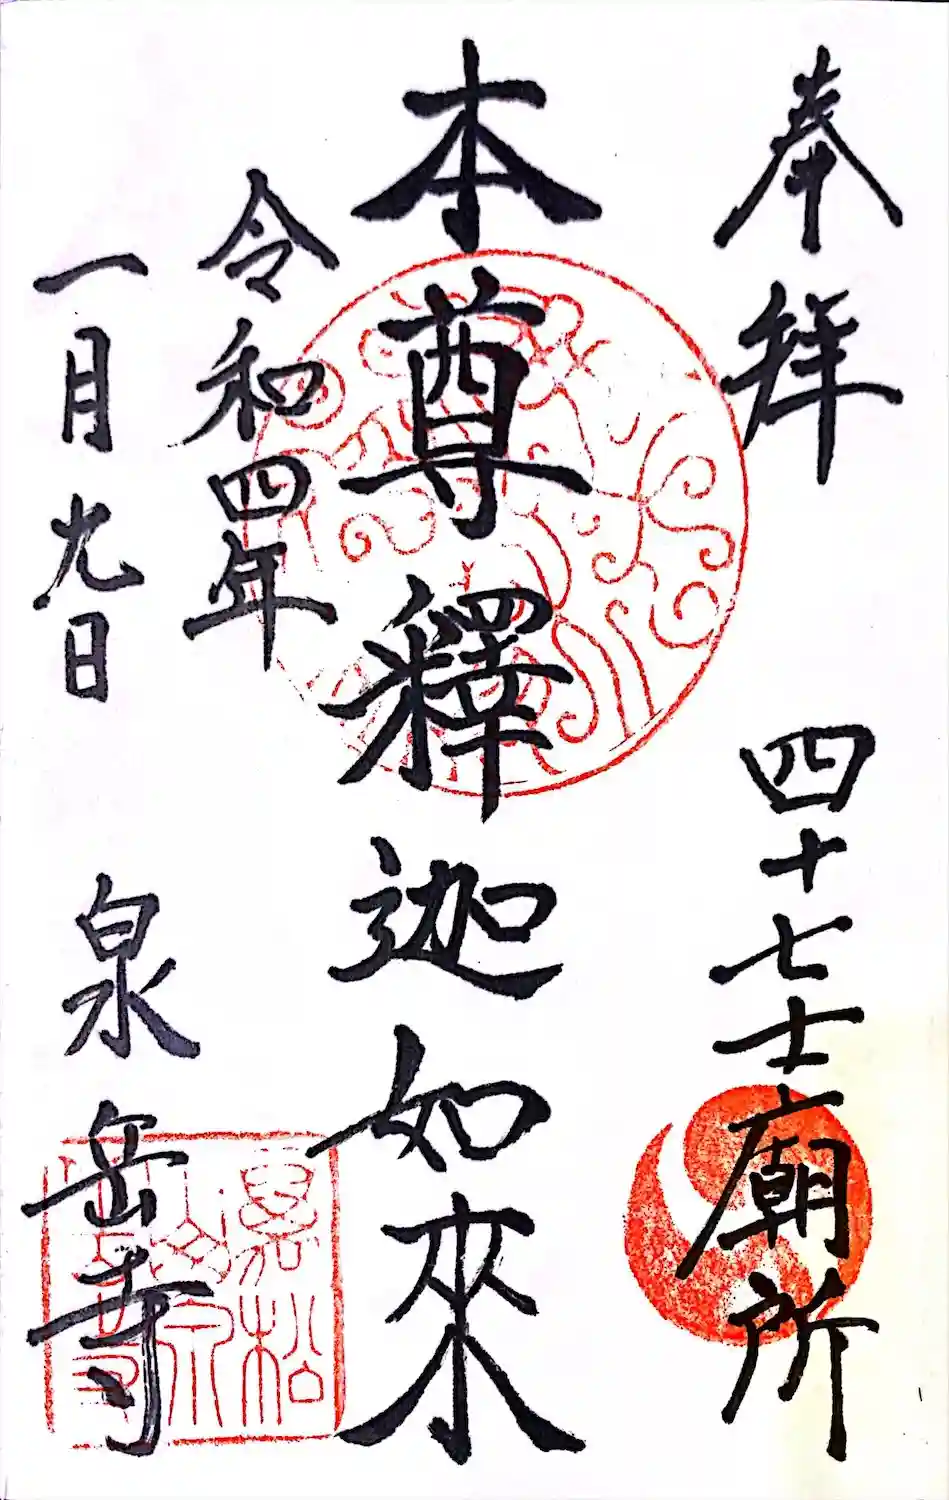 奉拜 四十七士廟所
本尊釋迦如來
令和四年
一月九日 泉岳寺